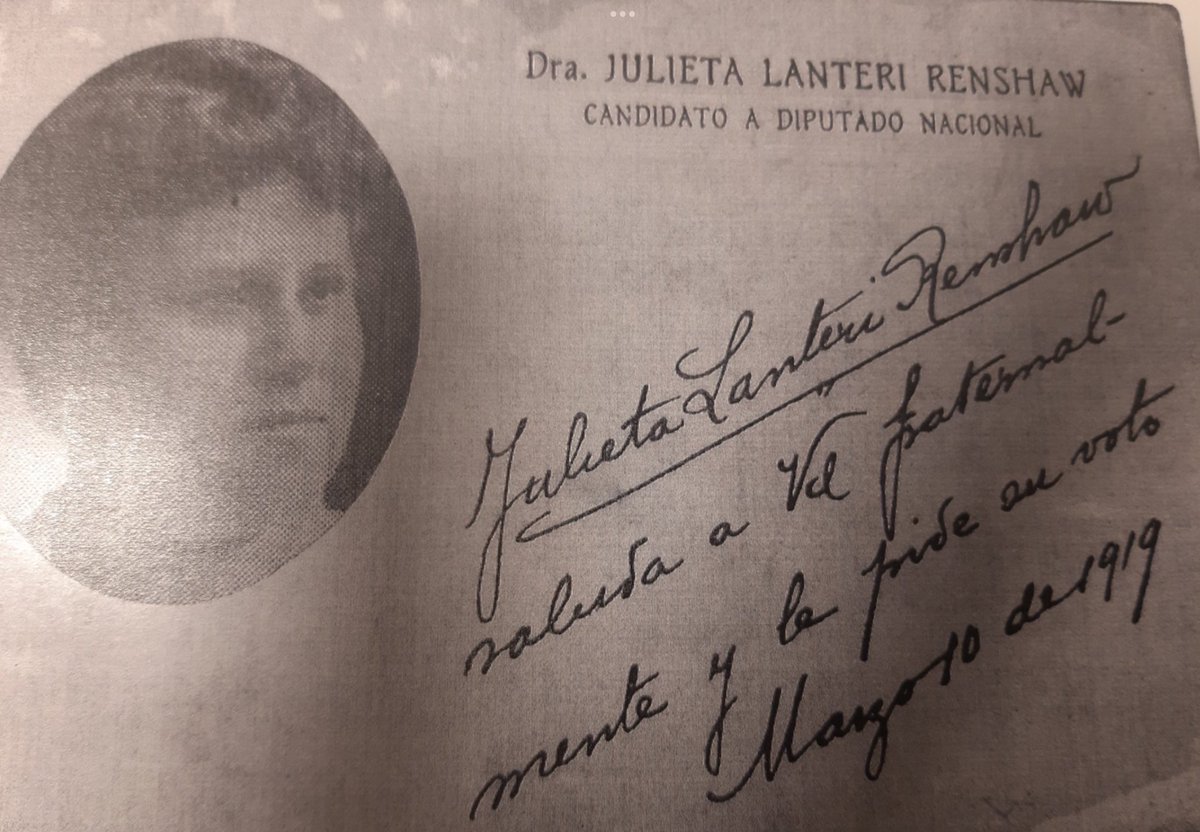 Dra. JULIETA LANTERI RENSHAW
CANDIDATO A DIPUTADO NACIONAL
Julieta Lanteri Renshaw
saluda a Vd fraternal-
mente y le pide su voto
Marzo 10 de 1919